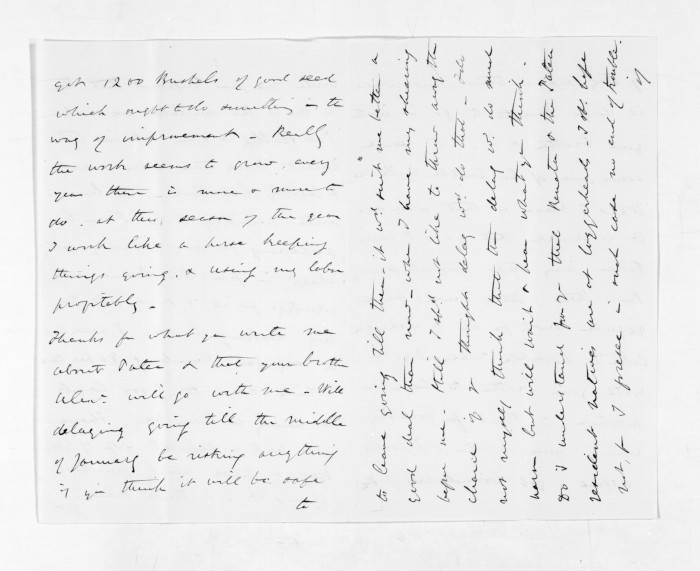 got 1200 Bushels of good seed
which ought to do something in the
way of improvement - Really
the work seems to grow, every
year there is more & more to
do. at this season of the year
I work like a horse keeping
things going, & using my labor
profitably -
Thanks for what you write me
about Patea & that your brother
Alexr. will go with me - Will
delaying going till the middle
of January be risking anything
if you think it will be safe
to
to leave going till then - it wd. suit me better a
good deal than now - when I have my shearing
before me. Still I shd. not like to throw away the
chance if you thought delay wd. do that - I do
not myself think that the delay wd. do much
harm but will wait & hear what you think -
Do I understand from you that Renata & the Patea
resident natives are at loggerheads - I shd. hope
not, for I foresee in such case no end of trouble.
if